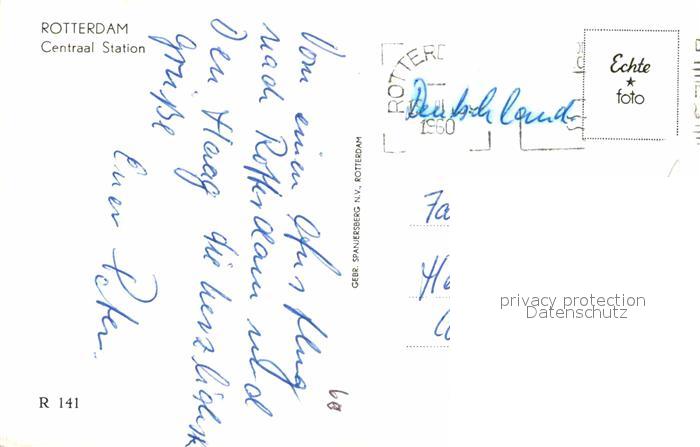 ROTTERDAM
Centraal Station
Von einen Ausflug
nach Rotterdam und
Den Haag die herzlichst
grüße
Euer Peter.
R 141
GEBR. SPANJERSBERG N.V., ROTTERDAM
60
ROTTERD
1960
Deutschland
Echte
foto
Fa
He
privacy protection
Datenschutz